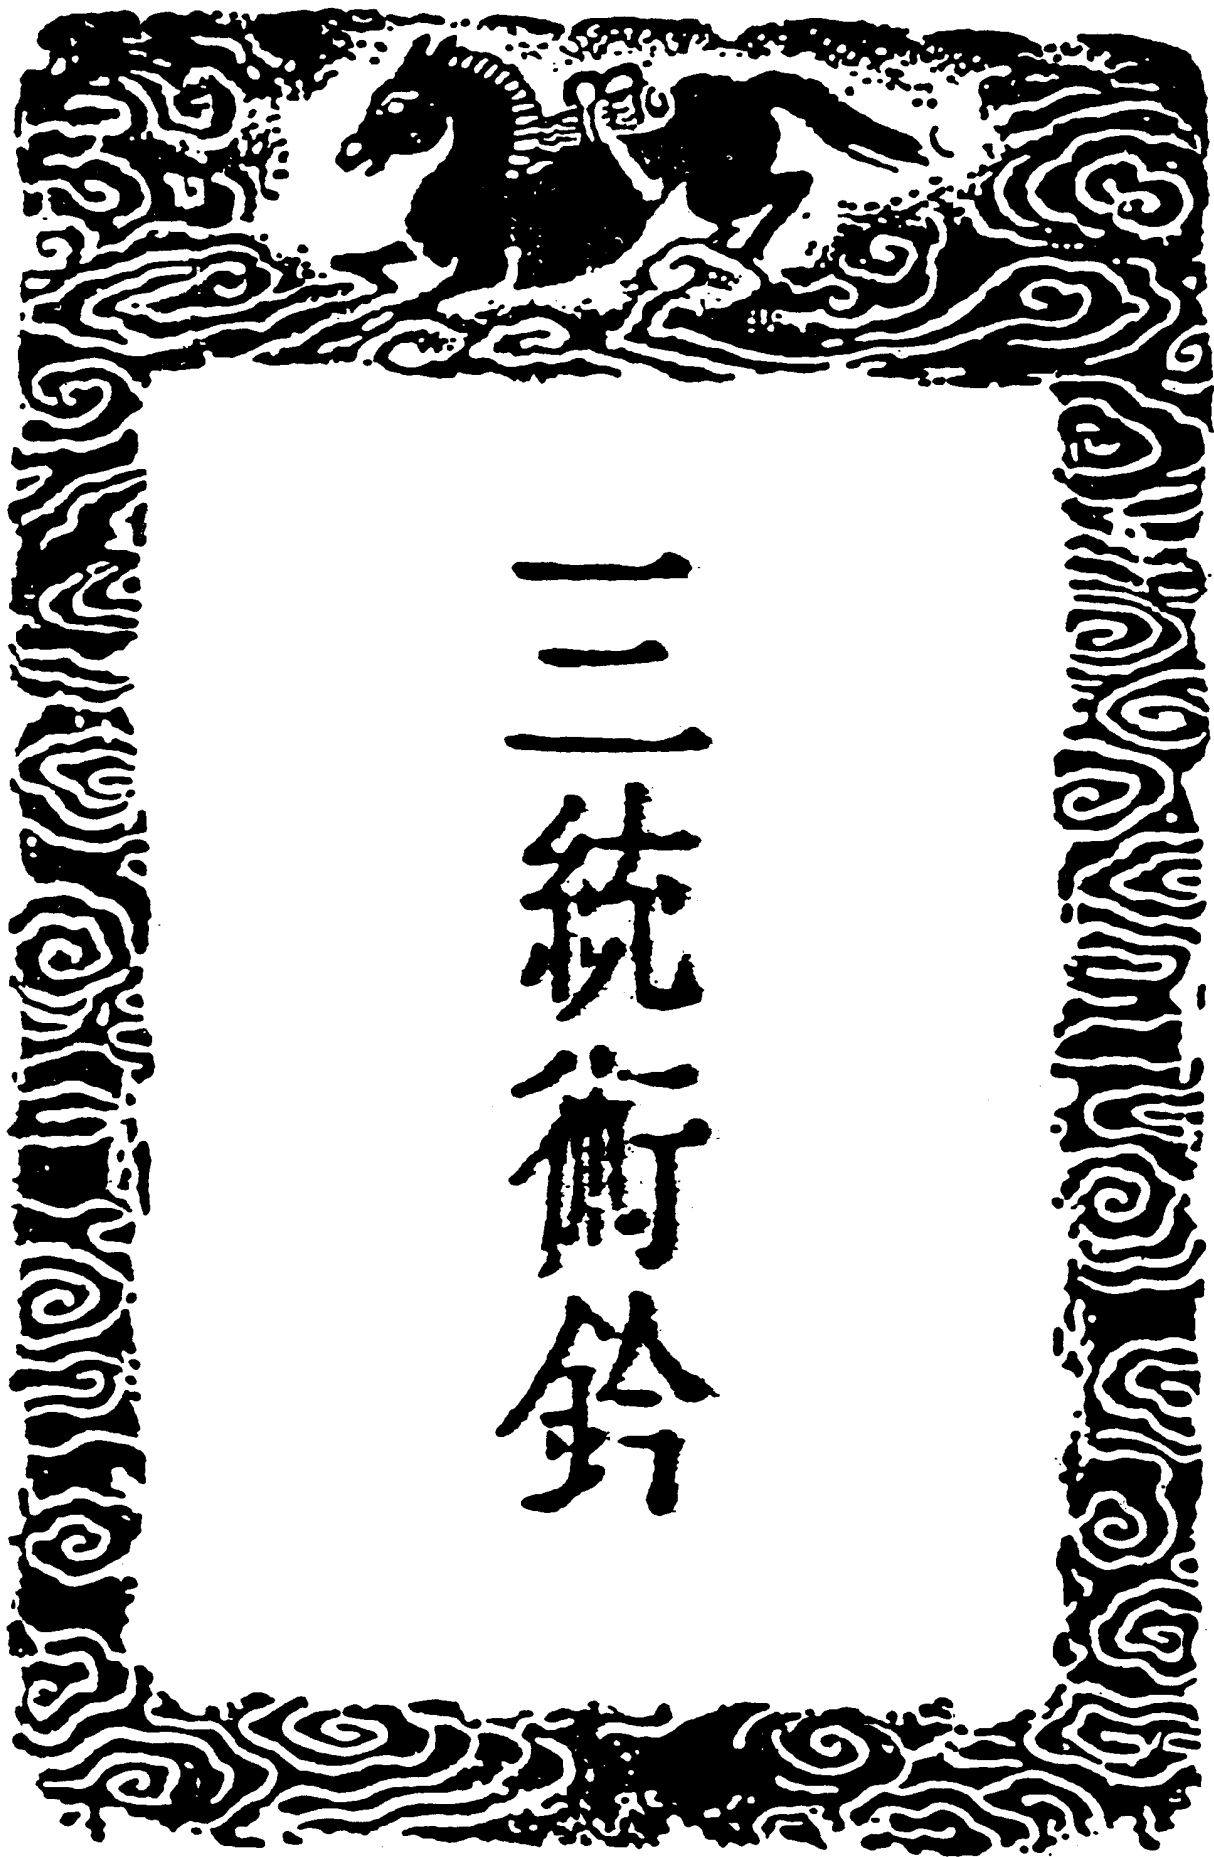 三統術鈐